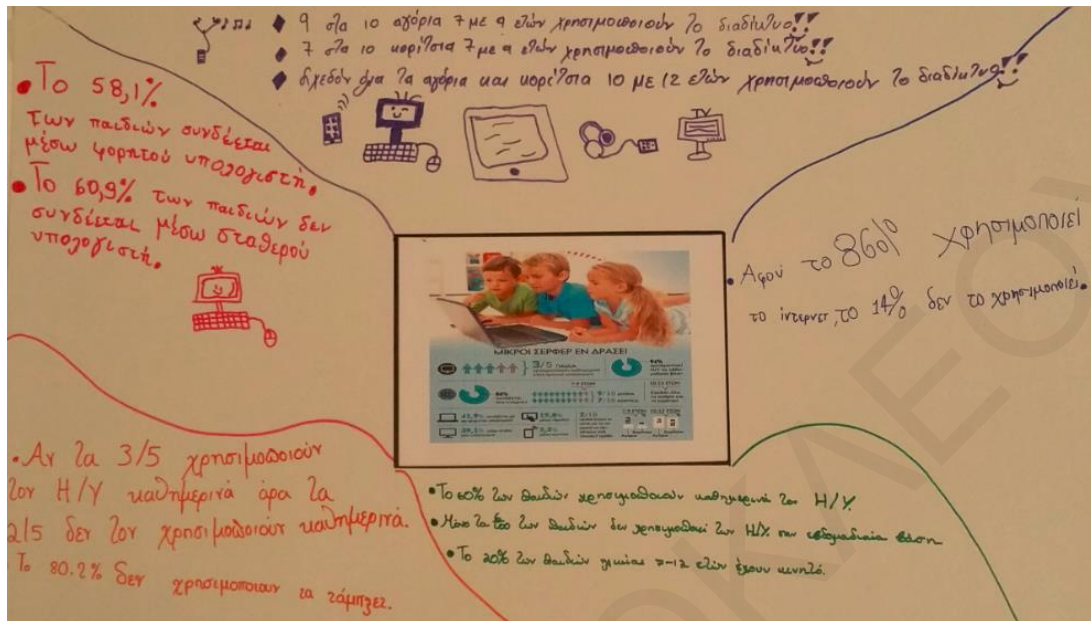 9 στα 10 αγόρια 7 με 9 ετών χρησιμοποιούν το διαδίκτυο!!
7 στα 10 κορίτσια 7 με 9 ετών χρησιμοποιούν το διαδίκτυο!!
Σχεδόν όλα τα αγόρια και κορίτσια 10 με 12 ετών χρησιμοποιούν το διαδίκτυο!!
• Το 58,1%
των παιδιών συνδέεται
μέσω φορητού υπολογιστή.
• Το 60,9% των παιδιών δεν
συνδέεται μέσω σταθερού
υπολογιστή.
• Αφού το 86% χρησιμοποιεί
το ίντερνετ, το 14% δεν το χρησιμοποιεί.
ΜΙΚΡΟΙ ΣΕΡΦΕΡ ΕΝ ΔΡΑΣΕΙ
3/5
9/10
7/10
• Αν τα 3/5 χρησιμοποιούν
τον Η/Υ καθημερινά άρα τα
2/5 δεν τον χρησιμοποιούν καθημερινά.
Το 80.2% δεν χρησιμοποιουν τα τάμπλετ.
• Το 60% των παιδιών χρησιμοποιούν καθημερινά τον Η/Υ.
• Μόνο τα των παιδιών δεν χρησιμοποιεί τον Η/Υ σην εβδομαδιαία βάση
• Το 20% των παιδιών ηλικίας 7-12 ετών έχουν κινητό.
ΟΚΛΕΟΥ